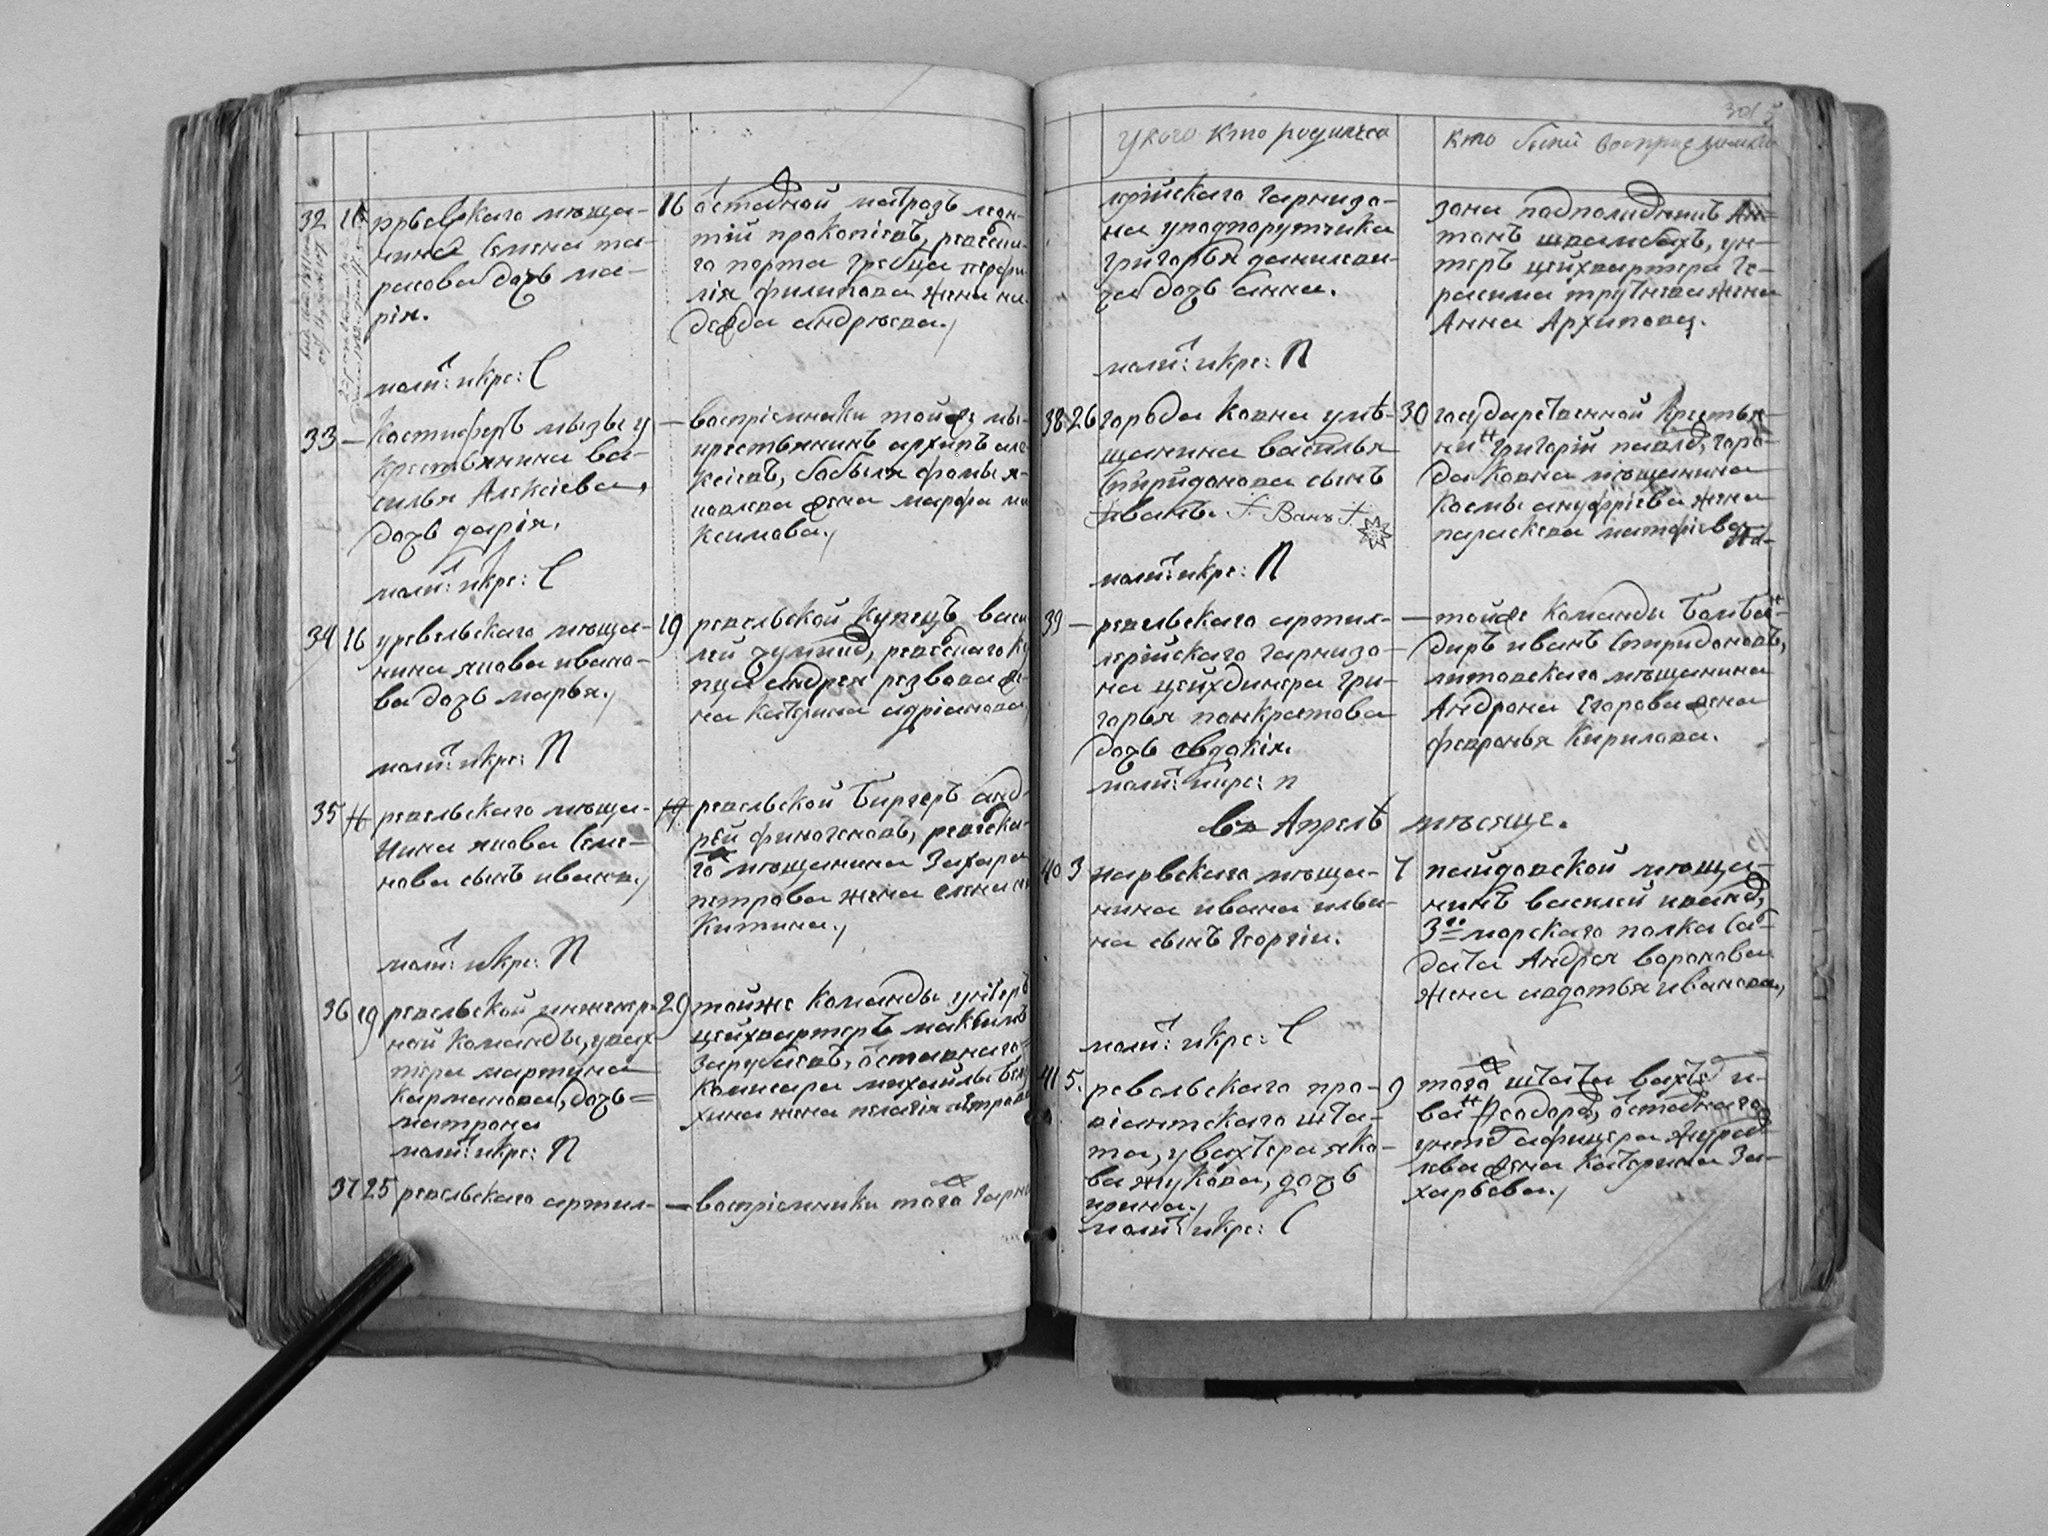 32
16
юрьевскаго мѣща-
нина Семена та-
расова дочь ма-
рія.
моли: икре: С
16
ѻставной матрозъ леон-
тій прокопіевъ, ревелска-
го порта гребца перфи-
лія филипова жена на-
дежда андрѣева./
33
—
Костиферъ мызы у
крестьянина ва-
силья Алексіева,
дочь дарія.
моли: икре: С
—
воспріемники тойже мы-
крестьянинъ архипъ але-
ксіевъ, бобыля фомы я-
ковлева жена марфа ма
ксимова./
34
16
уревельскаго мѣща-
нина якова ивано-
ва дочь марья./
моли: икре: П
19
ревельской купецъ васи
лей ревелскаго ку
пца андрея резвова же-
на катерина адріанова
35
ревельскаго мѣща-
нина якова Семе-
нова сынъ иванъ./
моли: икре: П
ревельской биргеръ анд-
рей финогеновъ, ревелска-
го мѣщанина Захара
петрова жена елена ни
китина./
36
19
ревельской инженер-
ной команды, увах
тера мартына
Карманова, дочь=
матрона
моли: икре: П
29
тойже команды унтеръ
цейхвартеръ максимъ
Зарубаевъ, ѻставнаго
комисара михайлы
хина жена пелагія петрова
37
25
ревельскаго артил-
—
воспріемники тогѡ гарни
301
у кого кто родился
кто были восприемники
лерійскаго гарнизо-
на уподпорутчика
григорья данилови-
ча дочь анна.
моли: икре: П
зона подполковникъ Ан-
тонъ швамбахъ, ун-
теръ цейхвартера Ге-
расима трутнева жена
Анна Архипова.
38
26
города ковна умѣ-
щанина василья
Спиридонова сынъ
иванъ. Ванъ
моли: икре: П
30
государственной крестья-
нинъ григорій павловъ, горо-
да ковна мѣщанина
космы ануфріева жена
параскева матфіева
39
—
ревельскаго артил-
лерійскаго гарнизо-
на цейхдинера гри-
горья панкратова
дочь евдокія.
моли: икре: п
—
тойже команды бомбан-
диръ иванъ Спиридоновъ,
литовскаго мѣщанина
Андрона Егорова жена
февронья Кирилова.
въ Апрелѣ мѣсяце.
40
3
нарвскаго мѣща-
нина ивана ильи-
на сынъ Георгіи.
моли: икре: С
7
пайдовской мѣща-
нинъ василей ивановъ,
3го морскаго полка Сол-
дата Андрея воронова
жена авдотья иванова,
41
5.
ревельскаго про-
віантскаго шта-
та, увахтера яко-
ва жукова, дочь
ирина./
моли: икре: С
9
тогѡ штата вахтеръ и-
ванъ Феодоровъ, ѻставнаго
унтеръ афицера журав-
лева жена катерина За-
харьева./